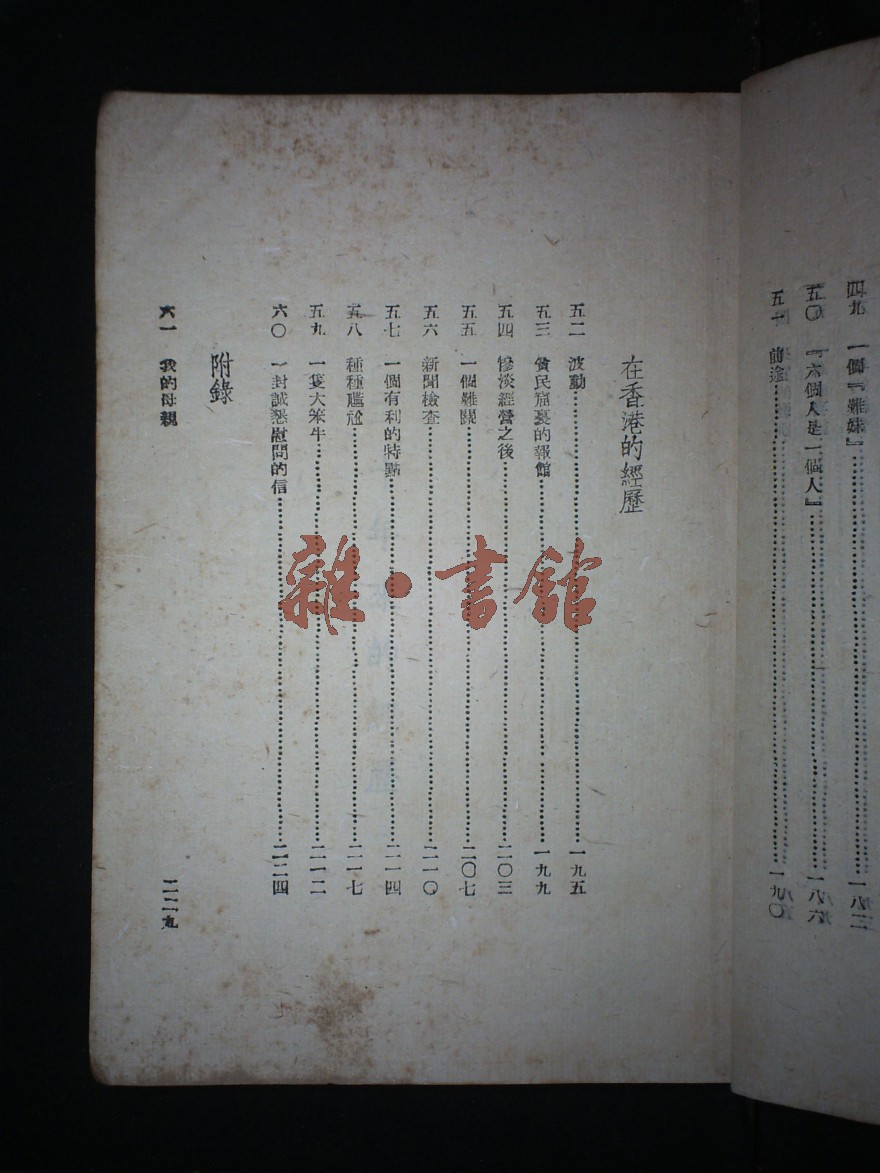 四九 一個『難妹』⋯⋯一八二
五〇 『六個人是一個人』⋯⋯一八六
五一 前途⋯⋯一九〇
在香港的經歷
五二 波動⋯⋯一九五
五三 貧民窟裏的報館⋯⋯一九九
五四 慘淡經營之後⋯⋯二〇三
五五 一個難關⋯⋯二〇七
五六 新聞檢查⋯⋯二一〇
五七 一個有利的特點⋯⋯二一四
五八 種種尷尬⋯⋯二一七
五九 一隻大笨牛⋯⋯二二二
六〇 一封誠懇慰問的信⋯⋯二二四
附錄
六一 我的母親 二二九
雜·書館